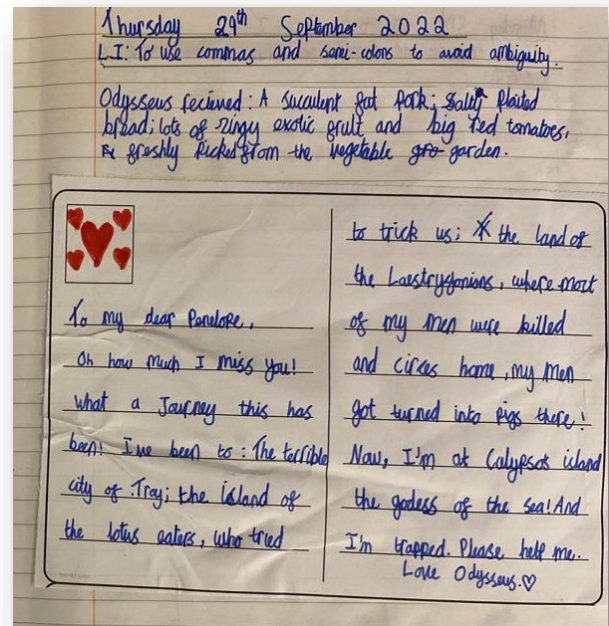 Thursday 29th September 2022
L.I: To use commas and semi-colons to avoid ambiguity.
Odysseus recieved: A succulent fat pork; salty plaited
bread; lots of zingy exotic fruit and big red tomatoes,
freshly picked from the vegetable garden.
To my dear Penelope,
Oh how much I miss you!
what a Journey this has
been! I've been to: The terrible
city of Troy; the island of
the lotus eaters, who tried
to trick us; the land of
the Laestrygonians, where most
of my men were killed
and circes home, my men
got turned into pigs there!
Now, I'm at Calypsos island
the godess of the sea! And
I'm trapped. Please help me.
Love Odysseus.♡